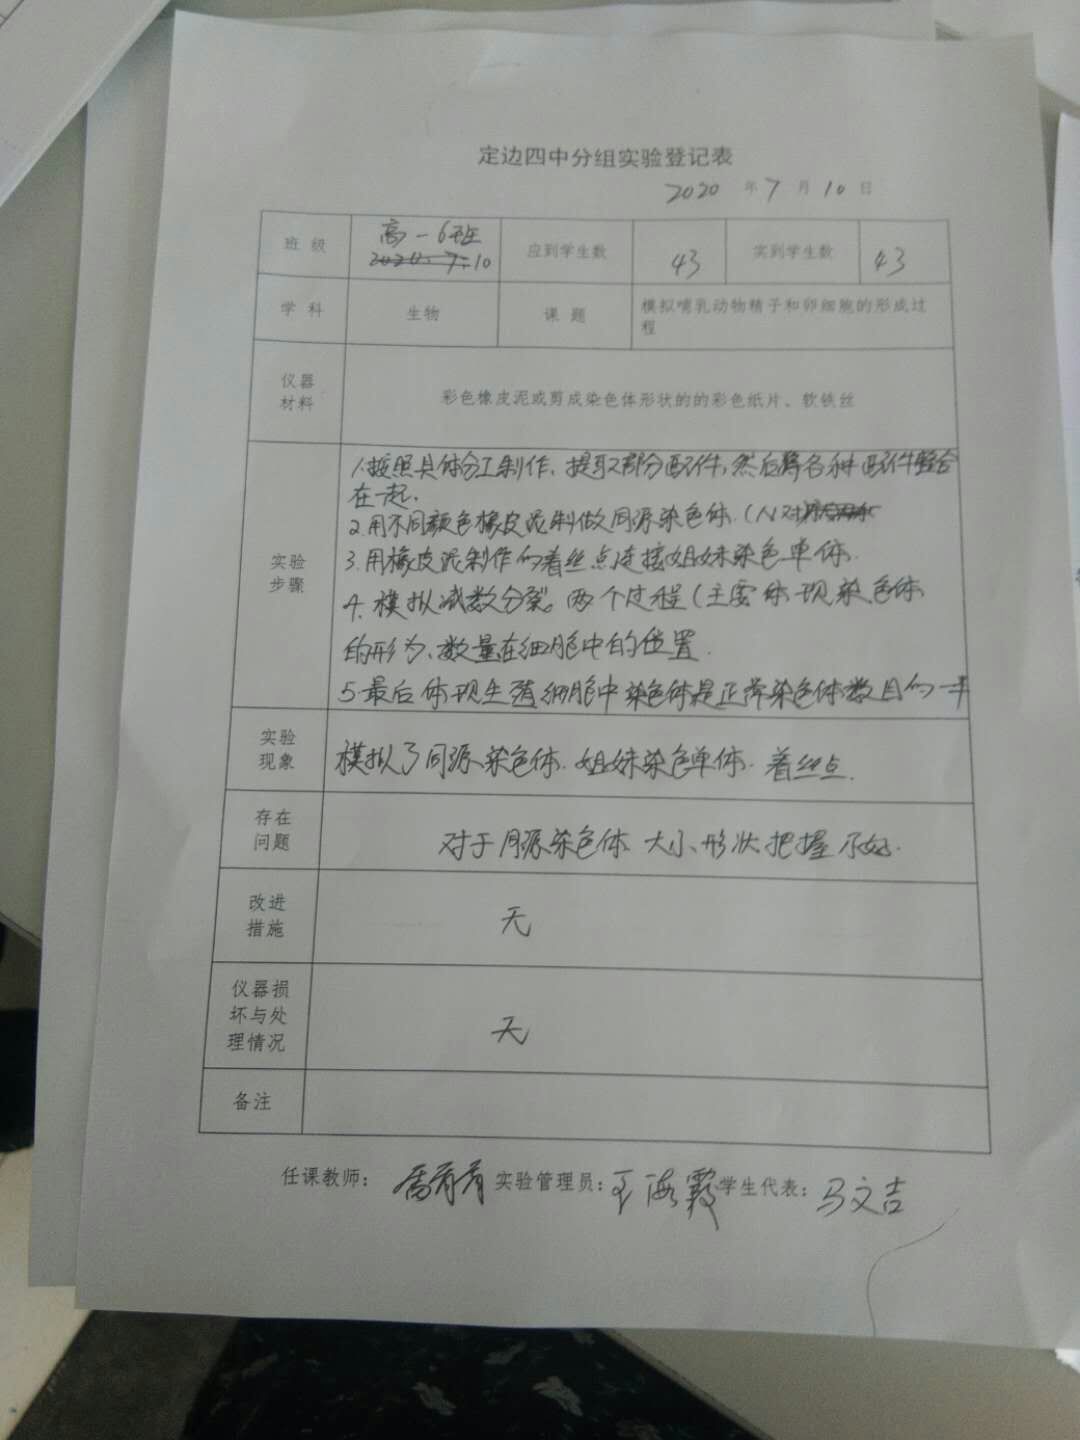 定边四中分组实验登记表
2020 年 7 月 10 日
班 级 高一6班 应到学生数 43 实到学生数 43
2020.7.10
学 科 生物 课 题 模拟哺乳动物精子和卵细胞的形成过
程
仪器
材料
彩色橡皮泥或剪成染色体形状的的彩色纸片、软铁丝
实验
步骤
1.按照具体分工制作、提取部分配件,然后将各种配件整合
在一起.
2.用不同颜色橡皮泥制做同源染色体.(
3.用橡皮泥制作的着丝点连接姐妹染色单体.
4.模拟减数分裂。两个过程(主要体现染色体
的形为、数量在细胞中的位置.
5.最后体现生殖细胞中染色体是正常染色体数目的一半
实验
现象
模拟了同源染色体.姐妹染色单体.着丝点.
存在
问题
对于同源染色体 大小、形状把握不好.
改进
措施
无
仪器损
坏与处
理情况
无
备注
任课教师: 实验管理员:王海霞 学生代表:马文吉